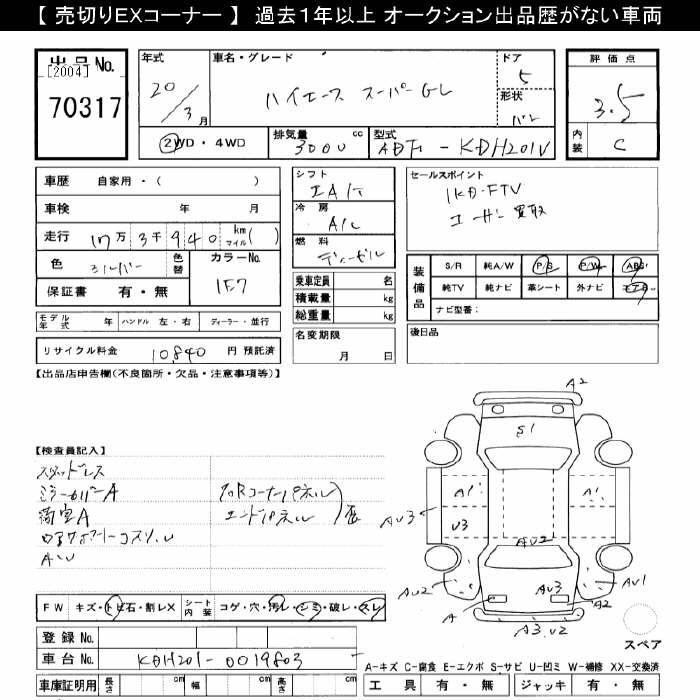 【 売切りEXコーナー 】 過去1年以上 オークション出品歴がない車両
出品No.
[2004]
70317
年式
20/3月
車名・グレード
ハイエース スーパーGL
ドア
5
形状
バン
評価点
3.5
内装
C
2WD・4WD
排気量 cc
3000
型式
ADF - KDH201V
車歴 自家用・( )
車検 年 月
走行 17万3千940 km マイル( )
色 シルバー
色替
カラーNo.
1E7
保証書 有・無
シフト
冷房
A/C
燃料
ディーゼル
セールスポイント
1KD-FTV
装備品
S/R 純A/W P/S P/W ABS
純TV 純ナビ 革シート 外ナビ エアB
ナビ型番:
乗車定員 名
積載量 kg
総重量 kg
モデル年式 年 ハンドル 左・右 ディーラー・並行
名変期限
月 日
後日品
リサイクル料金 10,840 円 預託済
【出品店申告欄(不良箇所・欠品・注意事項等)】
A2
S1
【検査員記入】
スタッドレス
ミラーカバーA
A
コーナーパネル
エンドパネル
歴
A1 A1
AV3 V3
AU2
AU2 AU3 AU1
A A2
A3.V2
スペア
FW キズ・トビ石・割レX シート内装 コゲ・穴・汚レ・シミ・破レ・スレ
登録No.
車台No. KDH201-0019803
車庫証明用 長さ cm 幅 cm 高さ cm
A-キズ C-腐食 E-エクボ S-サビ U-凹ミ W-補修 XX-交換済
工具 有・無 ジャッキ 有・無